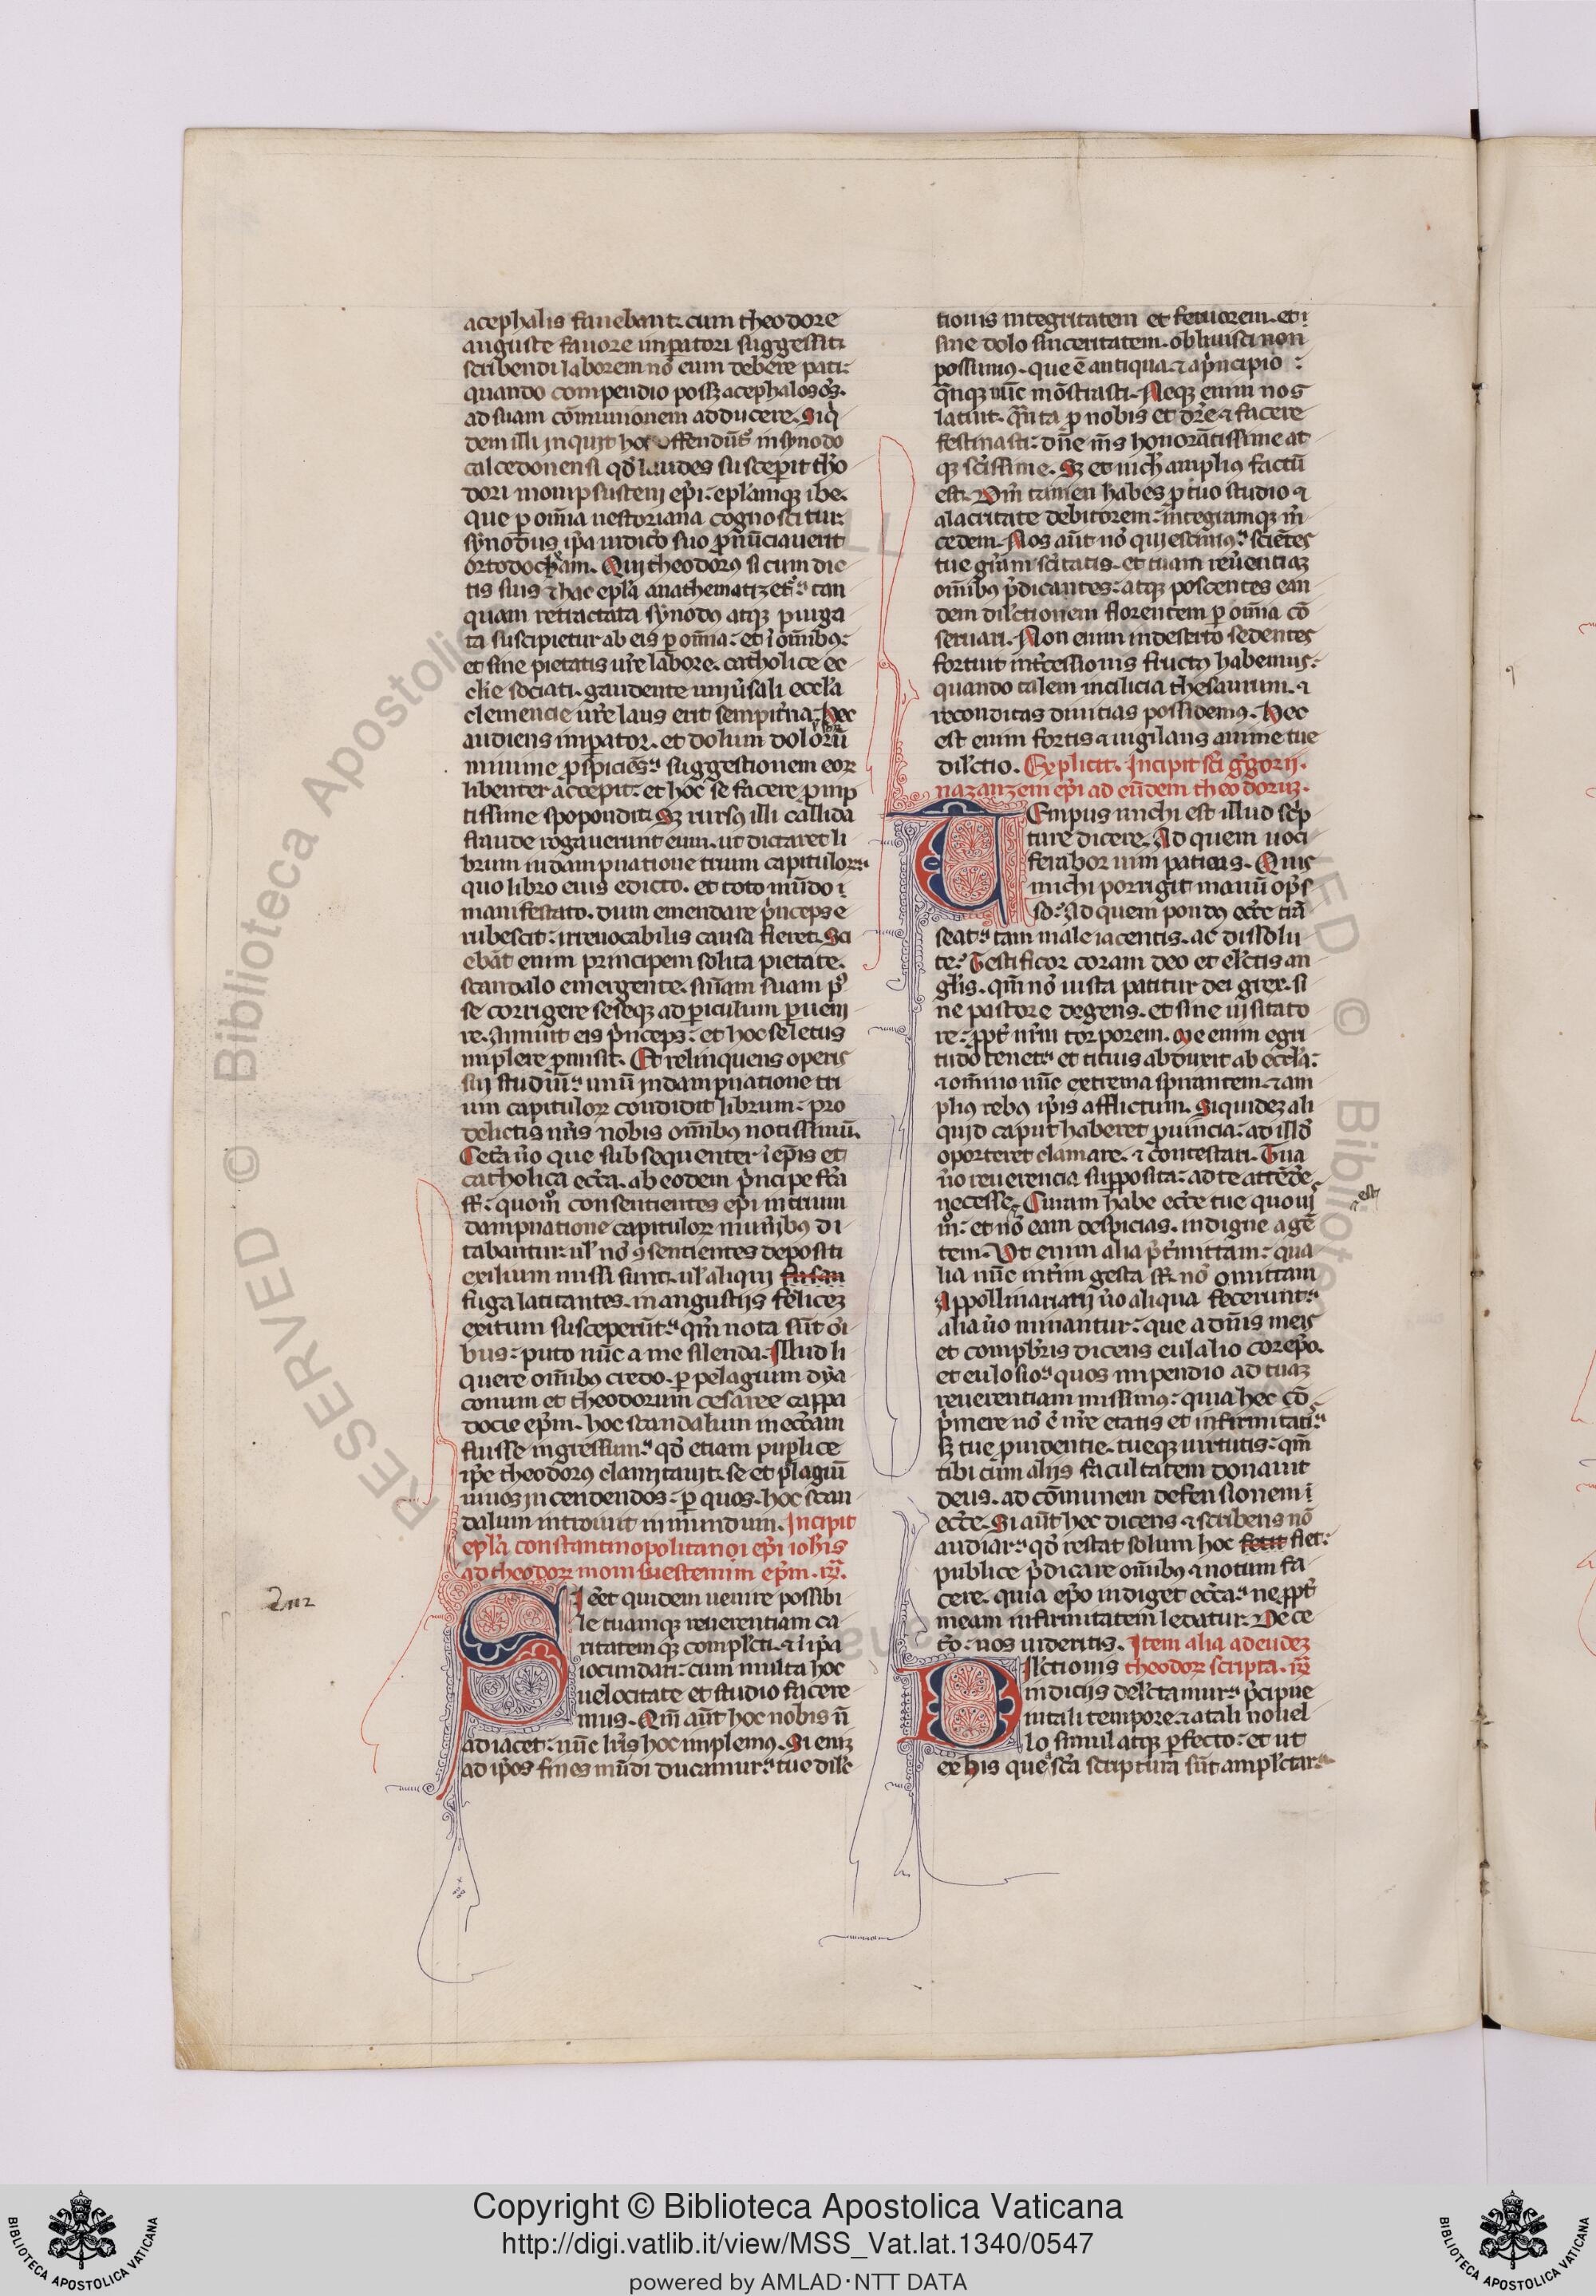 acephalis fauebant. cum theodore
auguste fauore imꝑatori suggessit
scribendi laborem nō eum debere pati:
quando compendio possꝫ acephalos oēs.
ad suam cōmunionem adducere. Siqͥ
dem illi inquit hoc offendūt᷑ in synodo
calcedonensi qd̄ laudes suscepit tho
dori mompsusteni ep̄i: ep̄lamqꝫ ibe.
que ꝑ om̄ia nestoriana cognoscitur
synodus ip̄a iudicio suo ꝓnūciauerit
ortodoxam. Qui theodorꝰ si cum dic
tis suis ⁊ hac epl̄a anathematizet᷑ tan
quam retractata synodꝰ atqꝫ purga
ta suscipietur ab eis ꝑ om̄ia: et ī om̄ibꝰ:
et sine pietatis ur̄e labore. catholice ec
cl̄ie sociati. gaudente uniūsali eccl̄a
clemencie ur̄e laus erit sempit̄na. Hec
audiens imꝑator. et dolum dolorū
minime ꝓspiciēs suggestionem eoꝝ
libenter accepit: et hoc se facere ꝓmp
tissime spopondit. Sꝫ rursꝰ illi callida
fraude rogauerunt eum. ut dictaret li
brum in dampnatione trium capituloꝝ
quo libro eius edicto. et toto mūdo ī
manifestato. dum emendare pͥnceps e
rubescit: irreuocabilis causa fieret. Sci
ebāt enim principem solita pietate.
scandalo emergente. sn̄iam suam pꝰ
se corrigere seseqꝫ ad ꝑiculum ꝑueni
re. Annuit eis pͥnceps: et hoc se letus
implere ꝓmisit. Et relinquens operis
sui studiū unū in dampnatione tri
um capituloꝝ condidit librum: pro
delictis nr̄is nobis om̄ibꝰ notissimū.
Cet̄a ūo que subsequenter ī ep̄is et
catholica ecc̄a. ab eodem pͥncipe fc̄a
st̄: quom̄ consentientes ep̄i in trium
dampnatione capituloꝝ mun̄ibꝰ di
tabantur: ul̓ nō ꝯsentientes depositi
exilium missi sunt. ul̓ aliqui
fuga latitantes. in angustijs felicez
exitum susceperūt qm̄ nota sūt oī
bus: puto nūc a me silenda. Illud li
quere om̄ibus credo. ꝑ pelagium dya
conum et theodorum cesaree cappa
docie ep̄m. hoc scandalum in ecc̄am
fuisse ingressum qd̄ etiam puplice
ip̄e theodorꝰ clamitauit. se et pl̄agiū
uiuos incendendos: ꝑ quos hoc scan
dalum introiuit in mundum. Incipit
epl̄a constantinopolitanoꝝ ep̄i ioh̄is
ad theodoꝝ momsuestenum ep̄m. ꝶ.
Iceet quidem uenire possibi
le tuamqꝫ reuerentiam ca
ritatemqꝫ compl̄cti. ⁊ ī ip̄a
iocundari: cum multa hoc
uelocitate et studio facere
mus. Qm̄ aūt hoc nobis n̄
adiacet: nūc lr̄is hoc implemꝰ. Si enīz
ad ip̄os fines mūdi ducamur tue dilc̄
tionis integritatem et feruorem. et ī
sine dolo sinceritatem. obliuisci non
possumꝰ. que ē antiqua. ⁊ a pͥncipio :
qͣnqꝫ nūc mōstrasti. Neqꝫ enim nos
latuit. qͣnta ꝓ nobis et dr̄e. ⁊ facere
festinasti: dn̄e m̄s honorātissime at
qꝫ sc̄issime. Sꝫ et nich̓ amplius factū
est. Om̄ tamen habes ꝓ tuo studio ⁊
alacritate debitorem: integramqꝫ m̄
cedem. Nos aūt nō quiescimꝰ sciētes
tue gr̄am sc̄itatis. et tuam reūentiaꝫ
om̄ibꝰ p̄dicantes: atqꝫ poscentes ean
dem dil̄ctionem florentem ꝑ om̄ia cō
seruari. Non enim indescito sedentes
fortuit int̄cessionis fructꝰ habemus:
quando talem in cilicia thesaurum. ⁊
reconditas diuitias possidemꝰ. Hec
est enim fortis ⁊ uigilans anime tue
dil̄ctio. Explicit. Incipit sc̄i gͥgorij.
nazanzeni ep̄i ad eūdem theodorūꝫ.
Empus michi est illud scͥp
ture dicere. Ad quem uoci
ferabor uim paticus. Quis
michi porrigit manū op̄s
so? Ad quem pondꝰ ecc̄e trā
seat tam male iacentis. ac dissolu
te? Testificor coram deo et el̄ctis an
gl̄is. qm̄ nō iusta patitur dei grex. si
ne pastore degens. et sine uisitato
re: ꝓpt̄ nr̄m torporem. Me enim egri
tudo tenet et citius abduxit ab eccl̄a:
⁊ om̄ino nūc extrema spirantem. ⁊ am
plius rebꝰ ip̄is afflictum. Siquidez ali
quid caput haberet ꝓuincia: ad illd̄
oporteret clamare. ⁊ contestari. Tua
ūo reuerencia supposita: ad te attēdē
necesse. Curam habe ecc̄e tue quoui est
m̄: et nō eam despicias. indigne agē
tem. Ut enim alia p̄t̄mittam: qua
lia nūc int̄im gesta st̄. nō omittam
Appollinaristij ūo aliqua fecerunt
alia ūo minantur: que a dn̄is meis
et compbr̄is dicens eulalio corep̄o.
et eulosio quos impendio ad tuaꝫ
reuerentiam missimꝰ: quia hec cō
pͥmere nō ē nr̄e etatis et infirmitatis
sꝫ tue ꝓuidentie. tueqꝫ uirtutis: qm̄
tibi cum aliis facultatem donauit
deus. ad cōmunem defensionem ī
ecc̄e. Si aūt hec dicens ⁊ scribens nō
audiar qd̄ restat solum hoc fiet:
publice p̄dicare om̄ibꝰ ⁊ notum fa
cere. quia ep̄o indiget ecc̄a ne ꝓpt̄
meam infirmitatem ledatur. De ce
t̄o: uos uideritis. Item alia ad eudeꝫ
Il̄ctionis theodoꝝ scripta. ꝶ
indiciis del̄ctamur p̄cipue
in tali tempore. ⁊ a tali nouel
lo simul atqꝫ ꝑfecto: et ut
ex his que sc̄a scriptura sūt ampl̄ctar
RESERVED © Biblioteca Apostolica
© Biblioteca
Copyright © Biblioteca Apostolica Vaticana
http://digi.vatlib.it/view/MSS_Vat.lat.1340/0547
powered by AMLAD·NTT DATA
BIBLIOTECA APOSTOLICA VATICANA
BIBLIOTECA APOSTOLICA VATICANA